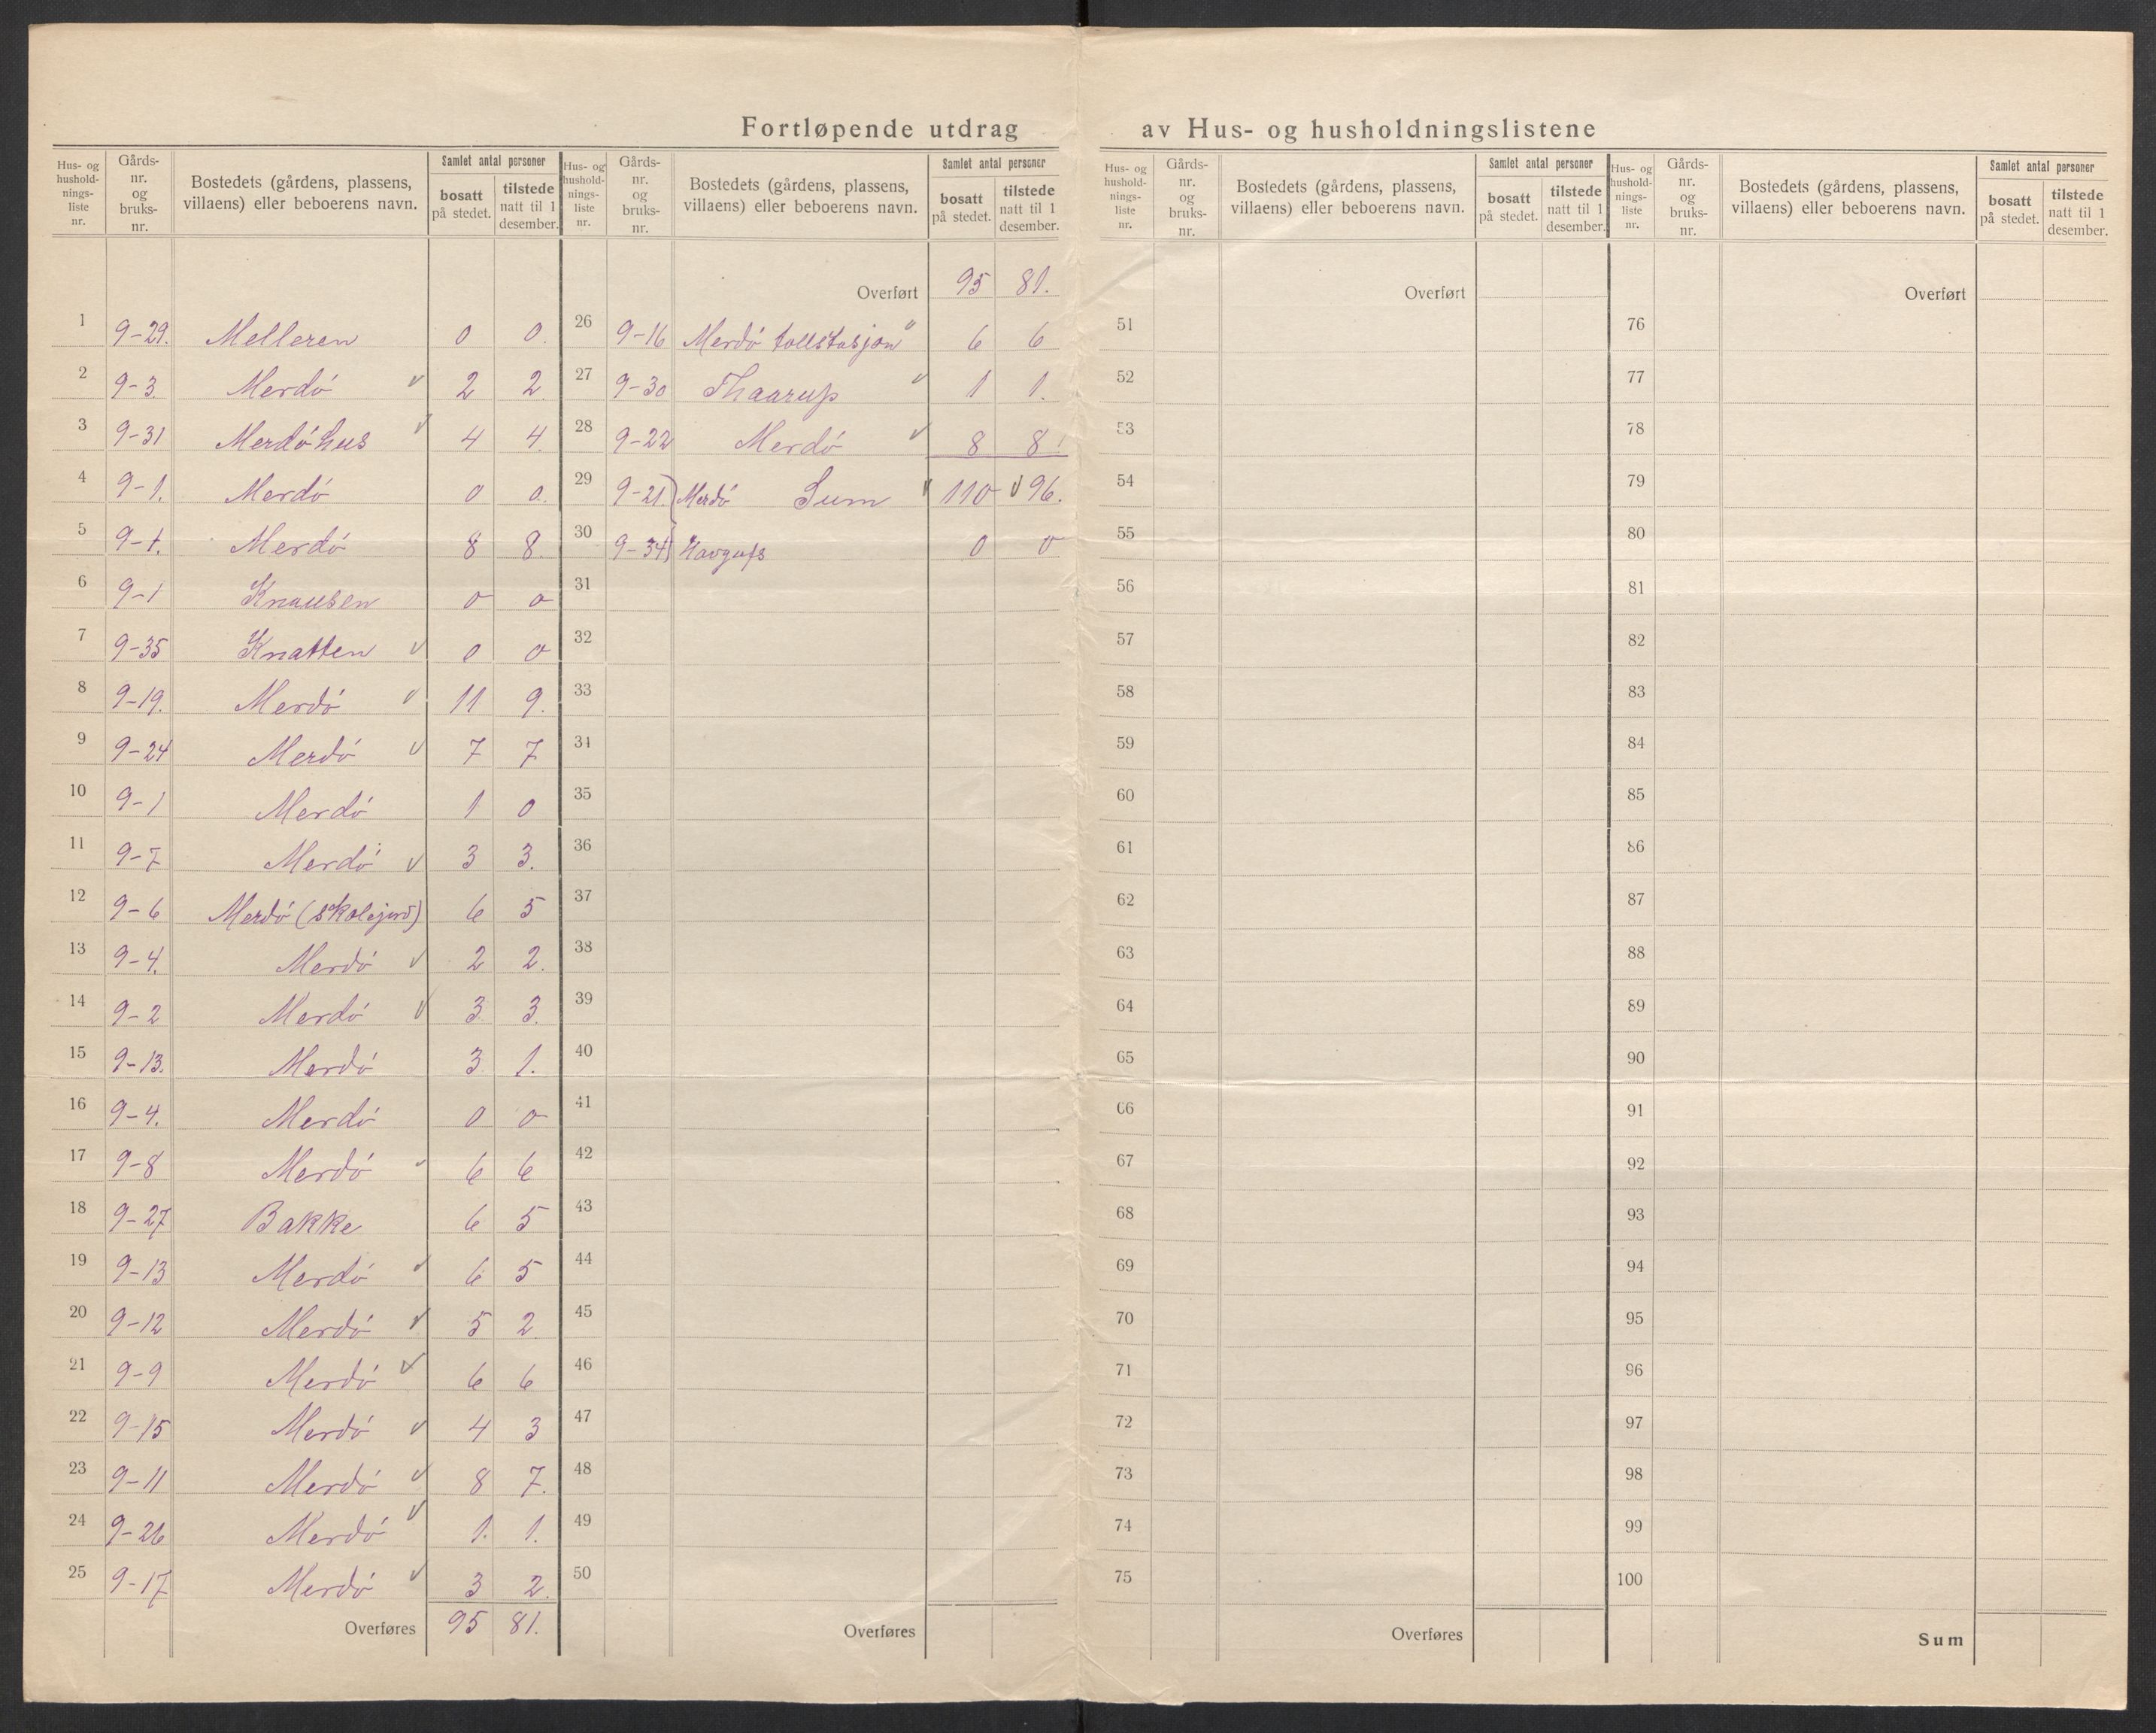 Fortløpende utdrag av Hus- og husholdningslistene
Hus- og hushold-nings-liste nr. | Gårds-nr. og bruks-nr. | Bostedets (gårdens, plassens, villaens) eller beboerens navn. | Samlet antal personer | bosatt på stedet. | tilstede natt til 1 desember.
1 9-29. Melleren 0 0.
2 9-3. Merdö 2 2.
3 9-31 Merdöhus 4 4.
4 9-1. Merdö 0 0.
5 9-1. Merdö 8 8.
6 9-1 Knausen 0 0
7 9-35 Knatten 0 0
8 9-19. Merdö 11 9.
9 9-24 Merdö 7 7
10 9-1 Merdö 1 0
11 9-7 Merdö 3 3.
12 9-6 Merdö (skolejord) 6 5
13 9-4. Merdö 2 2.
14 9-2 Merdö 3 3.
15 9-13. Merdö 3 1.
16 9-4. Merdö 0 0
17 9-8 Merdö 6 6
18 9-27 Bakke 6 5
19 9-13 Merdö 6 5
20 9-12 Merdö 5 2
21 9-9 Merdö 6 6
22 9-15 Merdö 4 3
23 9-11 Merdö 8 7.
24 9-26 Merdö 1. 1.
25 9-17 Merdö 3 2.
Overføres 95 81.
Hus- og hushold-nings-liste nr. | Gårds-nr. og bruks-nr. | Bostedets (gårdens, plassens, villaens) eller beboerens navn. | Samlet antal personer | bosatt på stedet. | tilstede natt til 1 desember.
Overført 95 81.
26 9-16 Merdö tollstasjon 6 6
27 9-30 Thaarup 1 1.
28 9-22 Merdö 8 8
29 9-21. Merdö Sum 110 96.
30 9-34 0 0
31
32
33
34
35
36
37
38
39
40
41
42
43
44
45
46
47
48
49
50
Overføres
Hus- og hushold-nings-liste nr. | Gårds-nr. og bruks-nr. | Bostedets (gårdens, plassens, villaens) eller beboerens navn. | Samlet antal personer | bosatt på stedet. | tilstede natt til 1 desember.
Overført
51
52
53
54
55
56
57
58
59
60
61
62
63
64
65
66
67
68
69
70
71
72
73
74
75
Overføres
Hus- og hushold-nings-liste nr. | Gårds-nr. og bruks-nr. | Bostedets (gårdens, plassens, villaens) eller beboerens navn. | Samlet antal personer | bosatt på stedet. | tilstede natt til 1 desember.
Overført
76
77
78
79
80
81
82
83
84
85
86
87
88
89
90
91
92
93
94
95
96
97
98
99
100
Sum